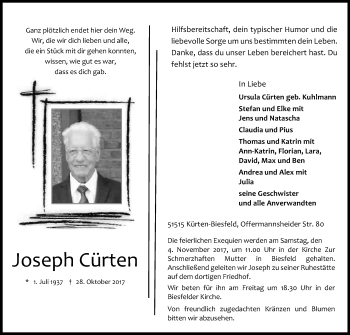 Ganz plötzlich endet hier dein Weg.
Wir, die wir dich lieben und alle, die
ein Stück mit dir gehen konnten,
wissen, wie gut es war,
dass es dich gab.
Joseph Cürten
* 1. Juli 1937 † 28. Oktober 2017
Hilfsbereitschaft, dein typischer Humor und die
liebevolle Sorge um uns bestimmten dein Leben.
Danke, dass du unser Leben bereichert hast. Du
fehlst jetzt so sehr.
In Liebe
Ursula Cürten geb. Kuhlmann
Stefan und Elke mit
Jens und Natascha
Claudia und Pius
Thomas und Katrin mit
Ann-Katrin, Florian, Lara,
David, Max und Ben
Andrea und Alex mit
Julia
seine Geschwister
und alle Anverwandten
51515 Kürten-Biesfeld, Offermannsheider Str. 80
Die feierlichen Exequien werden am Samstag, den
4. November 2017, um 11.00 Uhr in der Kirche Zur
Schmerzhaften Mutter in Biesfeld gehalten.
Anschließend geleiten wir Joseph zu seiner Ruhestätte
auf dem dortigen Friedhof.
Wir beten für ihn am Freitag um 18.30 Uhr in der
Biesfelder Kirche.
Von freundlich zugedachten Kränzen und Blumen
bitten wir abzusehen.